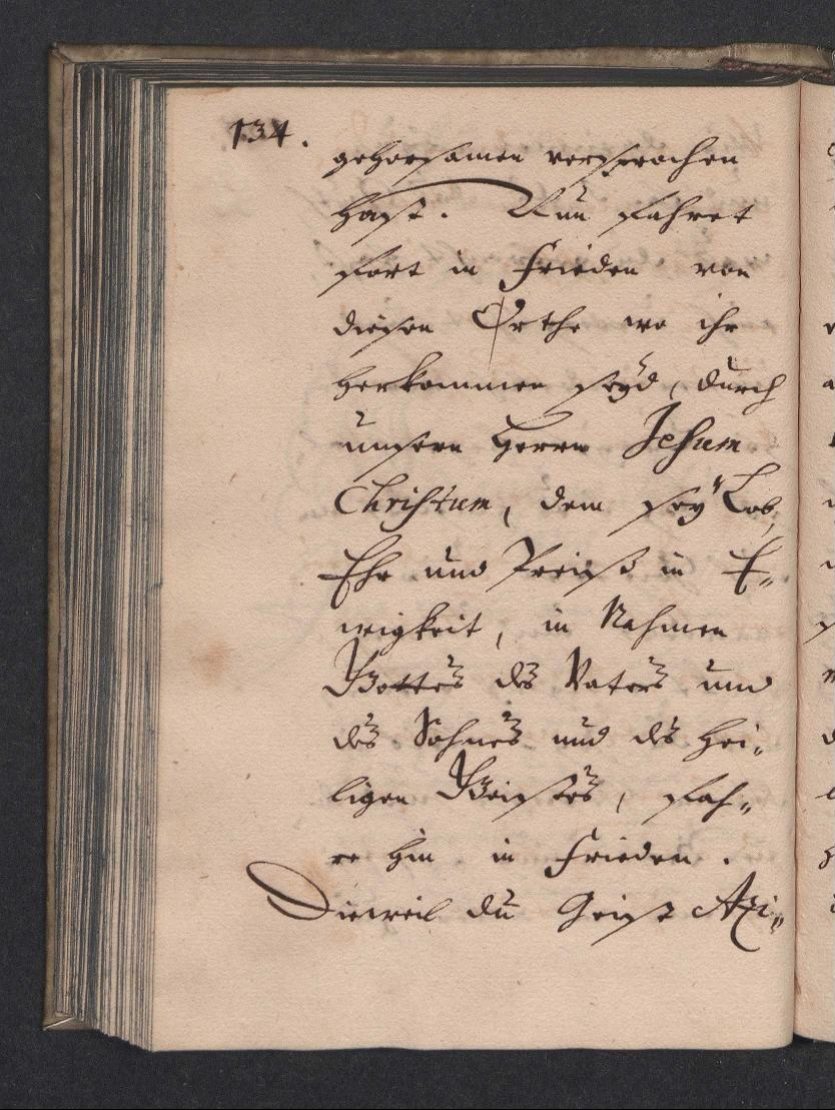 134.
gehorsamen versprochen
hast. Nun fahret
fort in Frieden von
diesen Orthe wo ihr
herkommen seÿd, durch
unsern Herrn Jesum
Christum, dem seÿ Lob,
Ehr und Preiß in E„
wigkeit, in Nahmen
Gottes des Vaters und
des Sohnes und des hei„
ligen Geistes, fah„
re hin in Frieden.
Dieweil du Geist Azi„